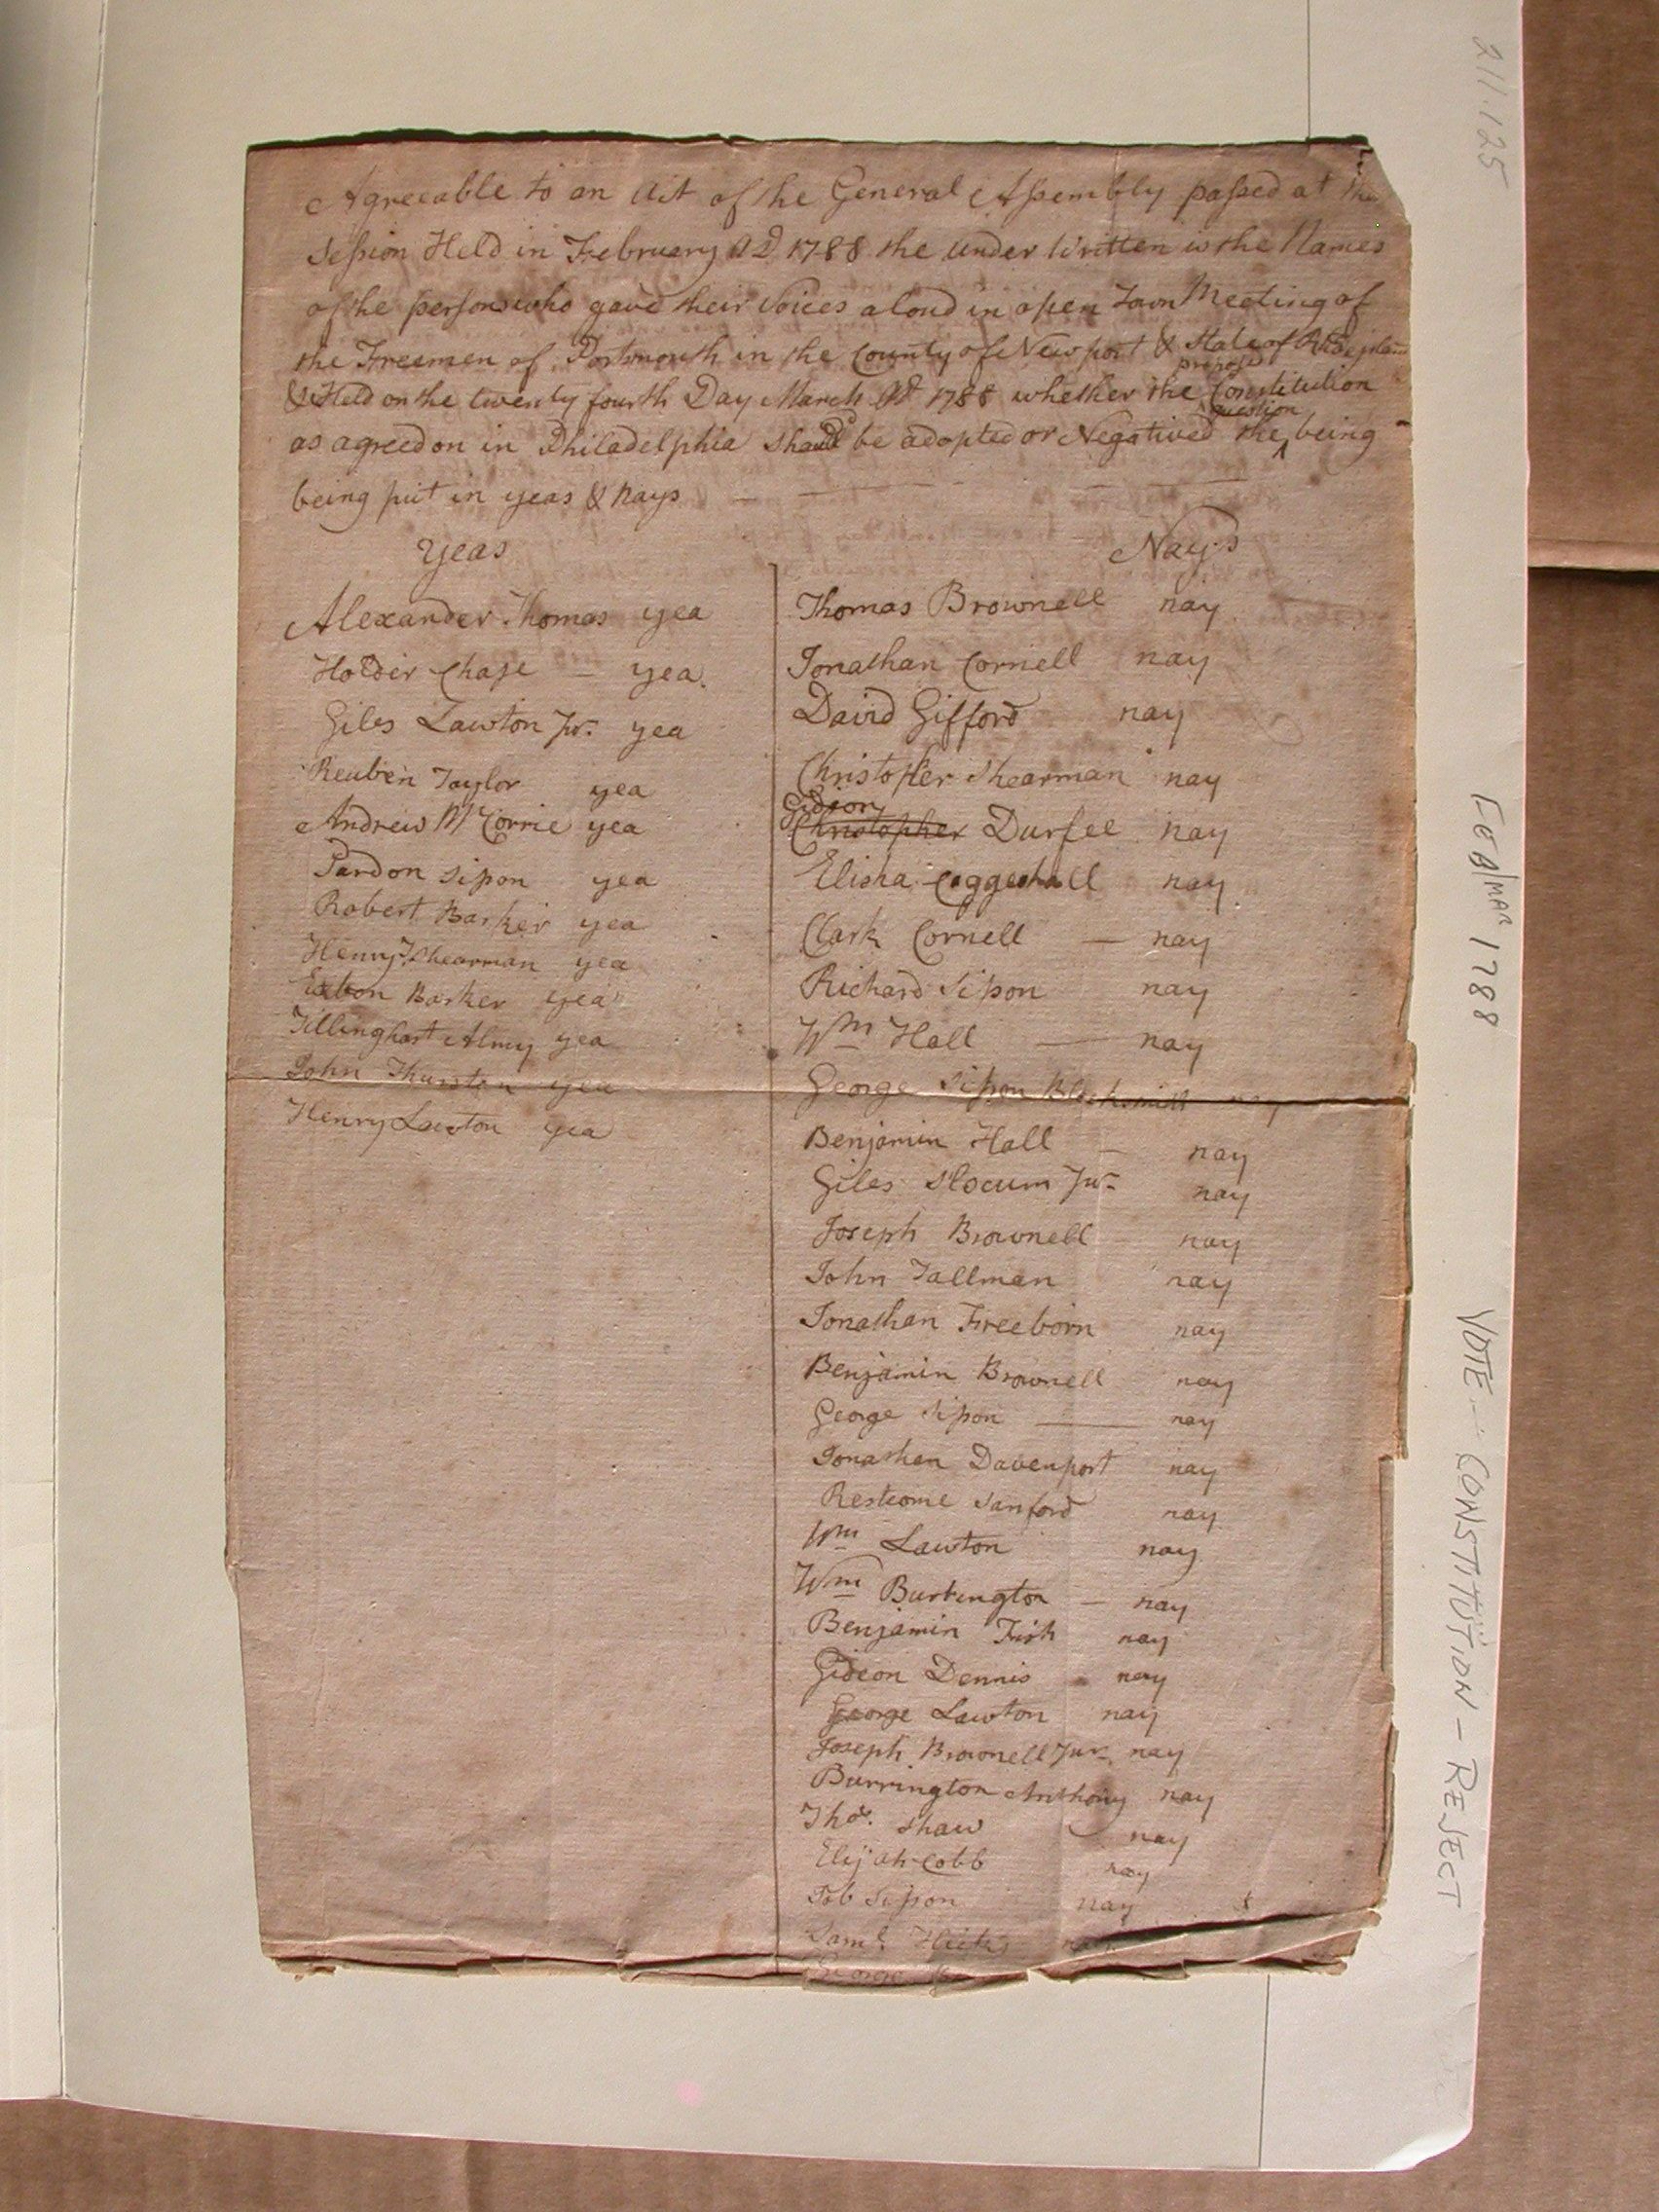 Agreeable to an Act of the General Assembly passed at the
Session Held in February AD 1788 the under Written is the Names
of the persons who gave their Voices aloud in open Town Meeting of
the Freemen of Portsmouth in the County of Newport & State of Rhode island
proposed
& Held on the twenty fourth Day March AD 1788 whether the Constitution
question
as agreed on in Philadelphia should be adopted or Negatived the being
being put in yeas & nays
Yeas
Nays
Alexander Thomas yea
Holder Chase - yea.
Giles Lawton Jur. yea
Reuben Taylor yea
Andrew McCorrie yea
Pardon Sisson yea
Robert Barker yea
Henry Shearman yea
Barker yea
Tillinghast Almy yea
John Thurston yea
Henry Lawton yea
Thomas Brownell nay
Jonathan Cornell nay
David Gifford nay
Christopher Shearman nay
Gideon
Christopher Durfee nay
Elisha Coggeshall nay
Clark Cornell — nay
Richard Sisson nay
Wm Hall — nay
George Sisson Blacksmith nay
Benjamin Hall - nay
Giles Slocum Jur nay
Joseph Brownell nay
John Tallman nay
Jonathan Freeborn nay
Benjamin Brownell nay
George Sisson — nay
Jonathan Davenport nay
Restcome Sanford nay
Wm Lawton nay
Wm Burrington — nay
Benjamin Fish nay
Gideon Dennis nay
George Lawton nay
Joseph Brownell Jur nay
Burrington Anthony nay
Thos. Shaw nay
Elijah Cobb nay
Job Sisson nay
Saml. Hicks nay
George
211.125
FEB/MAR 1788
VOTE - CONSTITUTION - REJECT